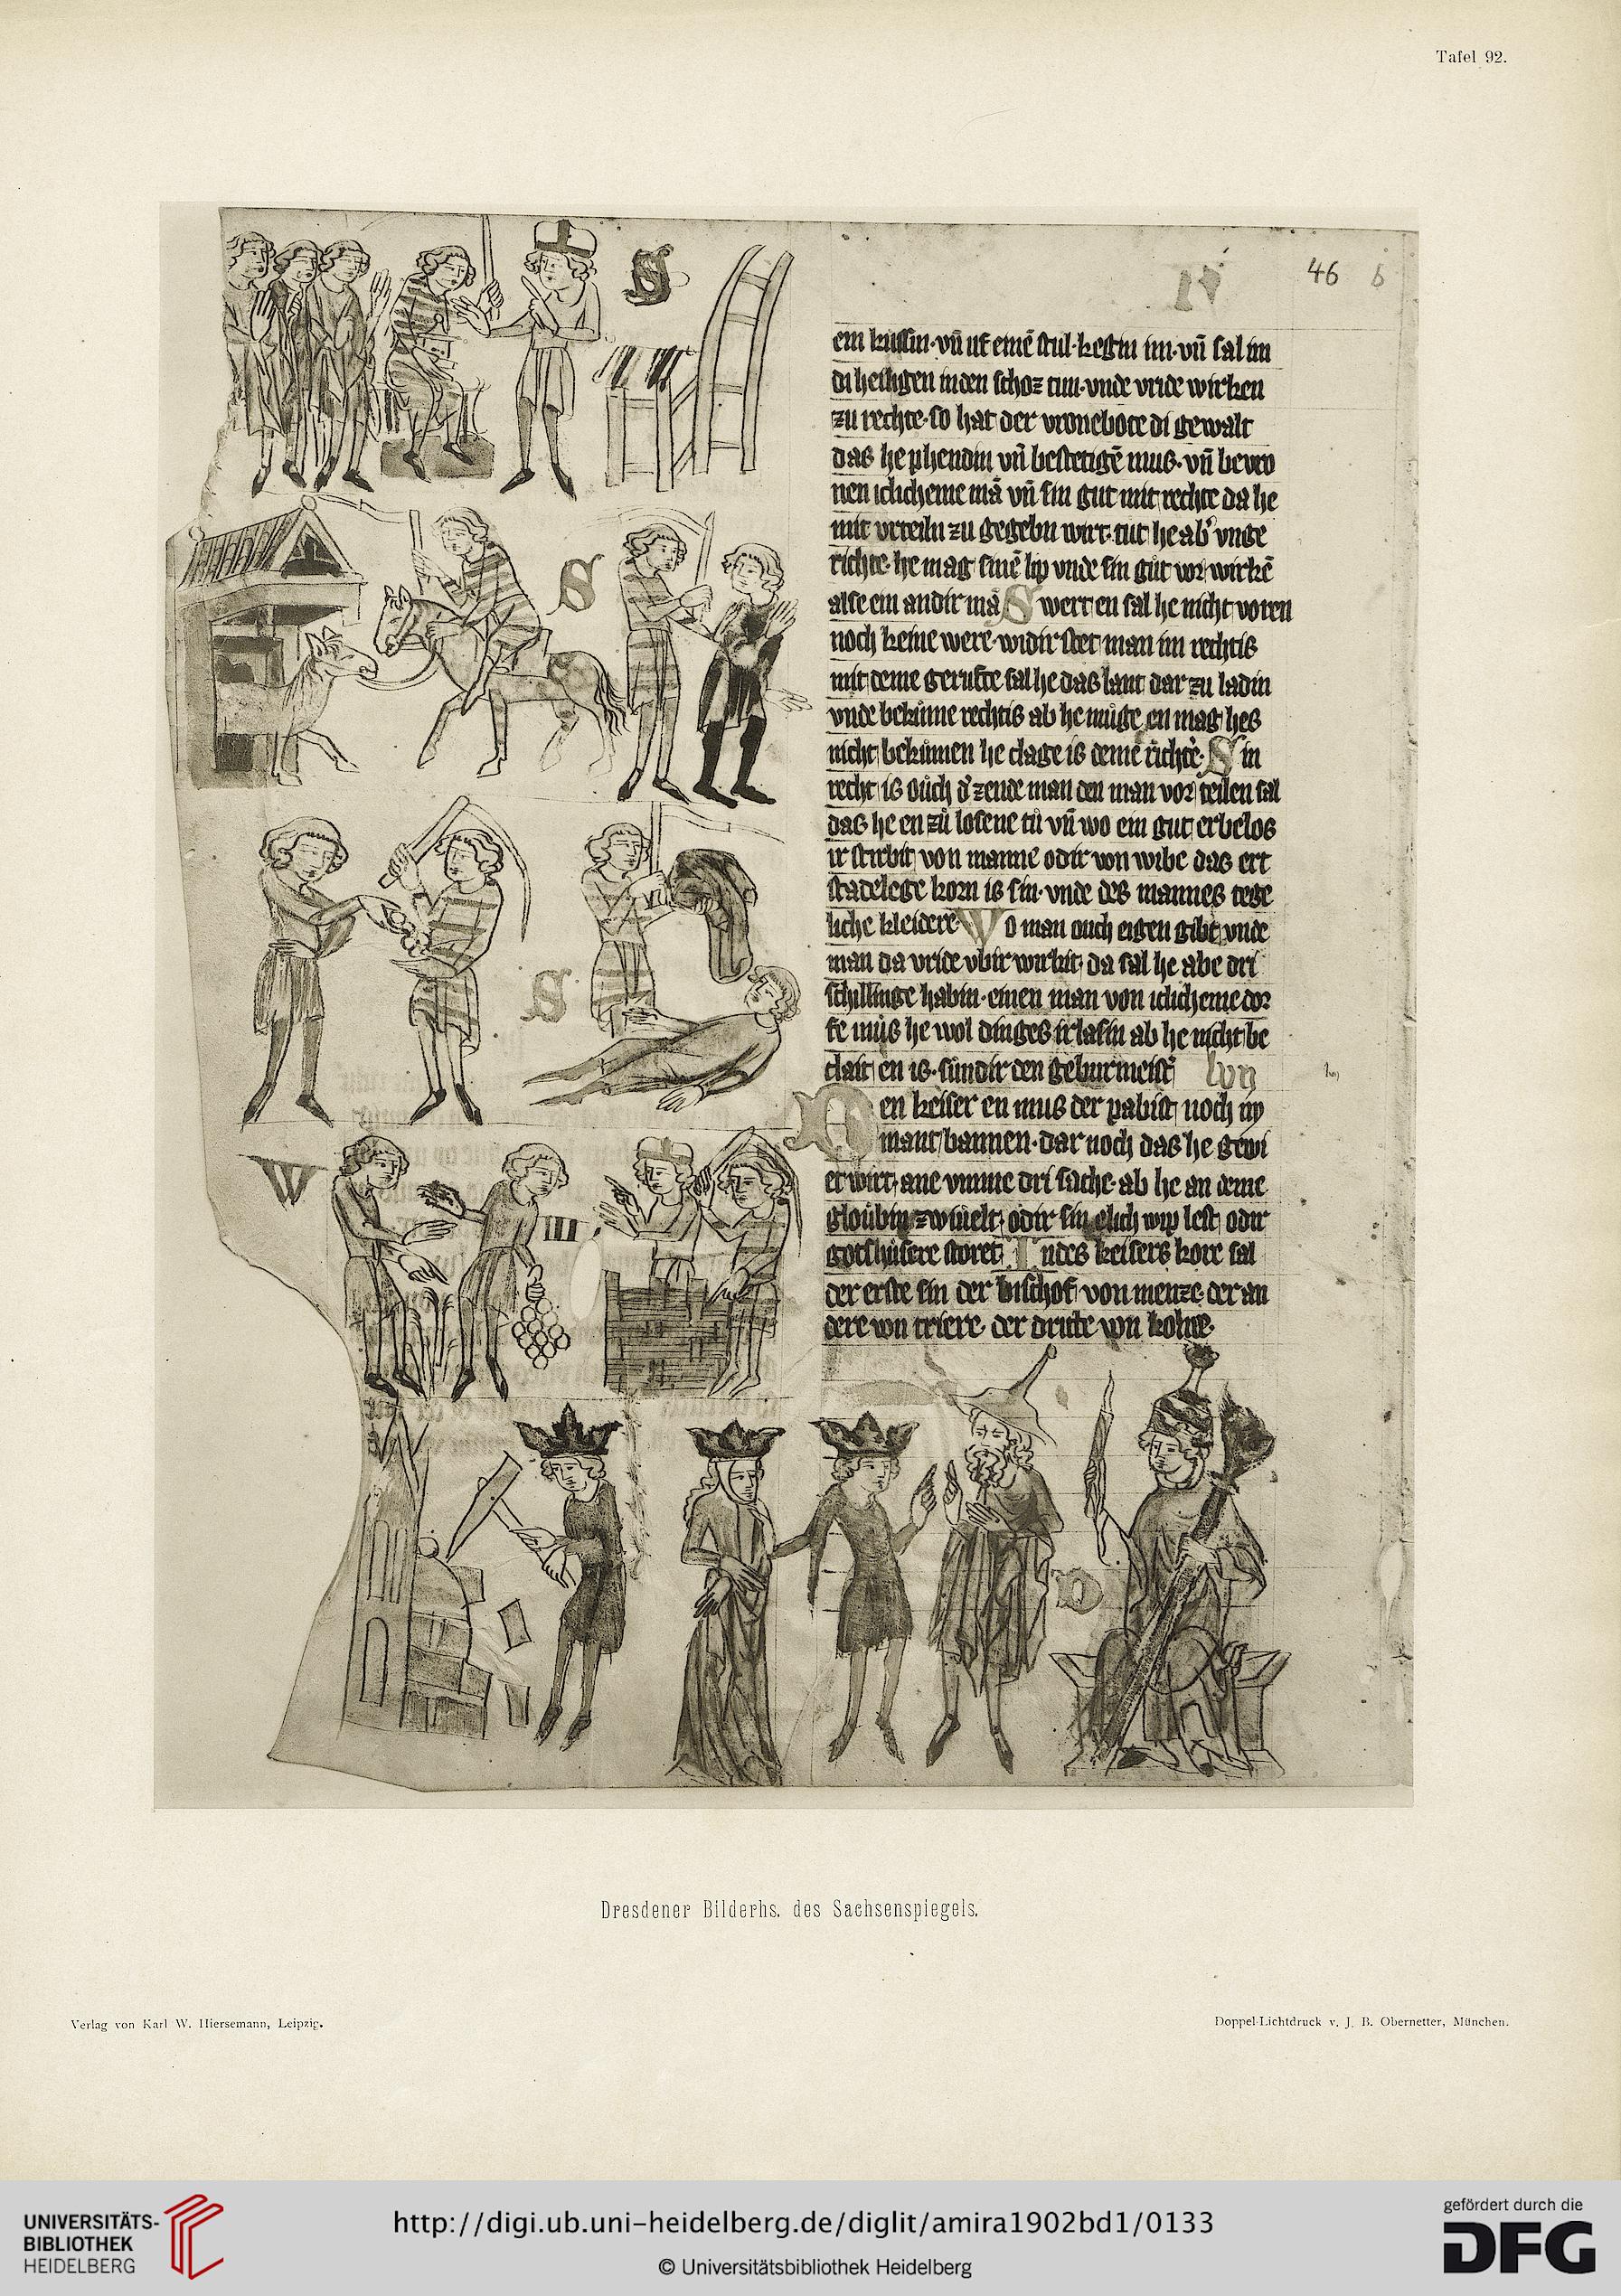 Tafel 92.
46 b
S
ein kussin· vn̄ uf einē stul· kegin im· vn̄ sal im
di heiligen in den schoz tun· vnde vride wirken
zu rechte· so hat der vronebote di gewalt
das he phendin vn̄ bestetigē mus· vn̄ bevro
nen iclicheme mā vn̄ sin gut mit rechte da he
mit vrteiln zu gegebn wirt· tut he ab' vnge
richte· he mag sinē lip vnde sin gut vorwirkē
alse ein andir mā S wert en sal he nicht voren
noch keine were· widirstet man im rechtis
mit deme gerufte sal he das lant dar zu ladin
vnde bekūme rechtis ab he muge en mag hes
nicht bekūmen he clage is deme richte'· S in
recht is ouch d' zende man den man vorteilen sal
das he en zu losene tu vn̄ wo ein gut erbelos
ir stirbit von manne odir von wibe das ert
stadelege korn is sin· vnde des mannes tege
liche kleidere W o man ouch eigen gibt vnde
man da vride vbir wirkit da sal he abe dri
schillinge habin· einen man von iclicheme dor
fe mus he wol dinges irlasin ab he nicht be
clait en is· sundir den geburmeist'
D en keiser en mus der pabist noch ny
mant bannen· dar noch das he gewi
et wirt· ane vmme dri sache· ab he an deme
gloubin zwiuelt· odir sin elich wip lest odir
gotshusere storet I n des keisers kore sal
der erste sin der bischof von menze· der an
dere von triere· der dritte von kolne·
S
S
W
III
D
Dresdener Bilderhs. des Sachsenspiegels.
Verlag von Karl W. Hiersemann, Leipzig.
Doppel-Lichtdruck v. J. B. Obernetter, München.
UNIVERSITÄTS-
BIBLIOTHEK
HEIDELBERG
http://digi.ub.uni-heidelberg.de/diglit/amira1902bd1/0133
© Universitätsbibliothek Heidelberg
gefördert durch die
DFG